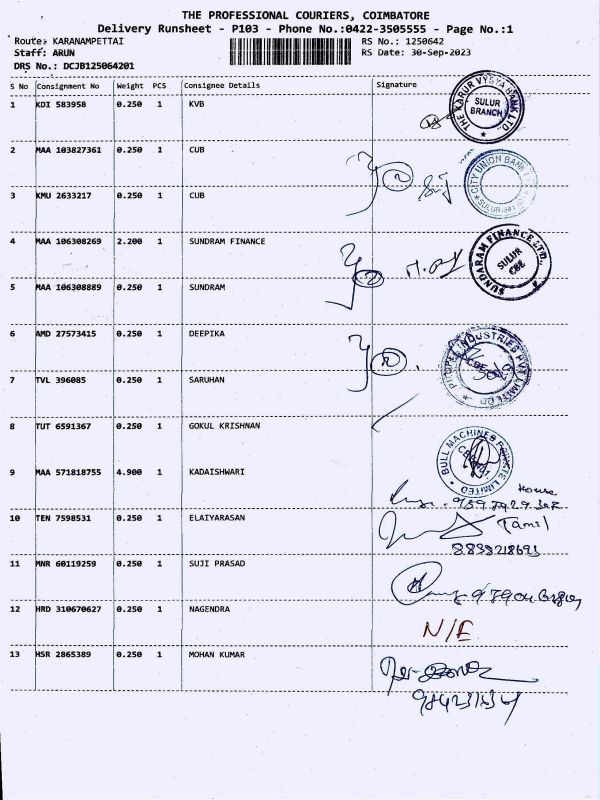 THE PROFESSIONAL COURIERS, COIMBATORE
Delivery Runsheet - P103 - Phone No.:0422-3505555 - Page No.:1
Route: KARANAMPETTAI RS No.: 1250642
Staff: ARUN RS Date: 30-Sep-2023
DRS No.: DCJB125064201
S No Consignment No Weight PCS Consignee Details Signature
1 KDI 583958 0.250 1 KVB
THE KARUR VYSYA BANK LTD.
SULUR
BRANCH
2 MAA 103827361 0.250 1 CUB
CITY UNION BANK
3 KMU 2633217 0.250 1 CUB
4 MAA 106308269 2.200 1 SUNDRAM FINANCE
SUNDARAM FINANCE LTD.,
SULUR
CBE
5 MAA 106308889 0.250 1 SUNDRAM
6 AMD 27573415 0.250 1 DEEPIKA
INDUSTRIES PVT LIMITED
7 TVL 396085 0.250 1 SARUHAN
8 TUT 6591367 0.250 1 GOKUL KRISHNAN
BULL MACHINES PRIVATE LIMITED
9 MAA 571818755 4.900 1 KADAISHWARI
House
10 TEN 7598531 0.250 1 ELAIYARASAN
Tamil
8838218693
11 MNR 60119259 0.250 1 SUJI PRASAD
12 HRD 310670627 0.250 1 NAGENDRA
N/E
13 HSR 2865389 0.250 1 MOHAN KUMAR